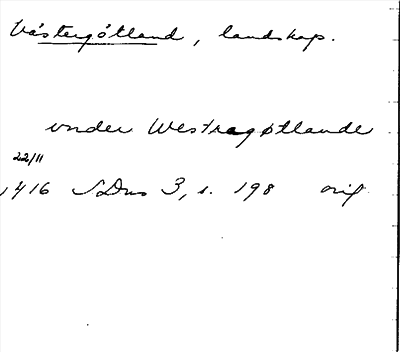 Västergötland, landskap.
under Westragøtlande
22/11
1416 SDns 3, s. 198 orig